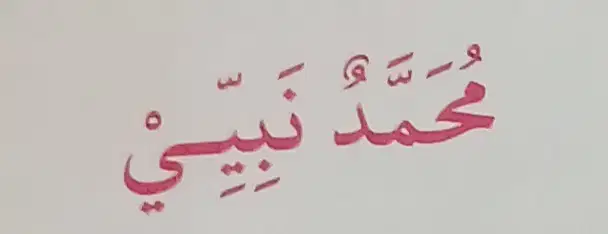 مُحَمَّدٌ نَبِيِّيْ